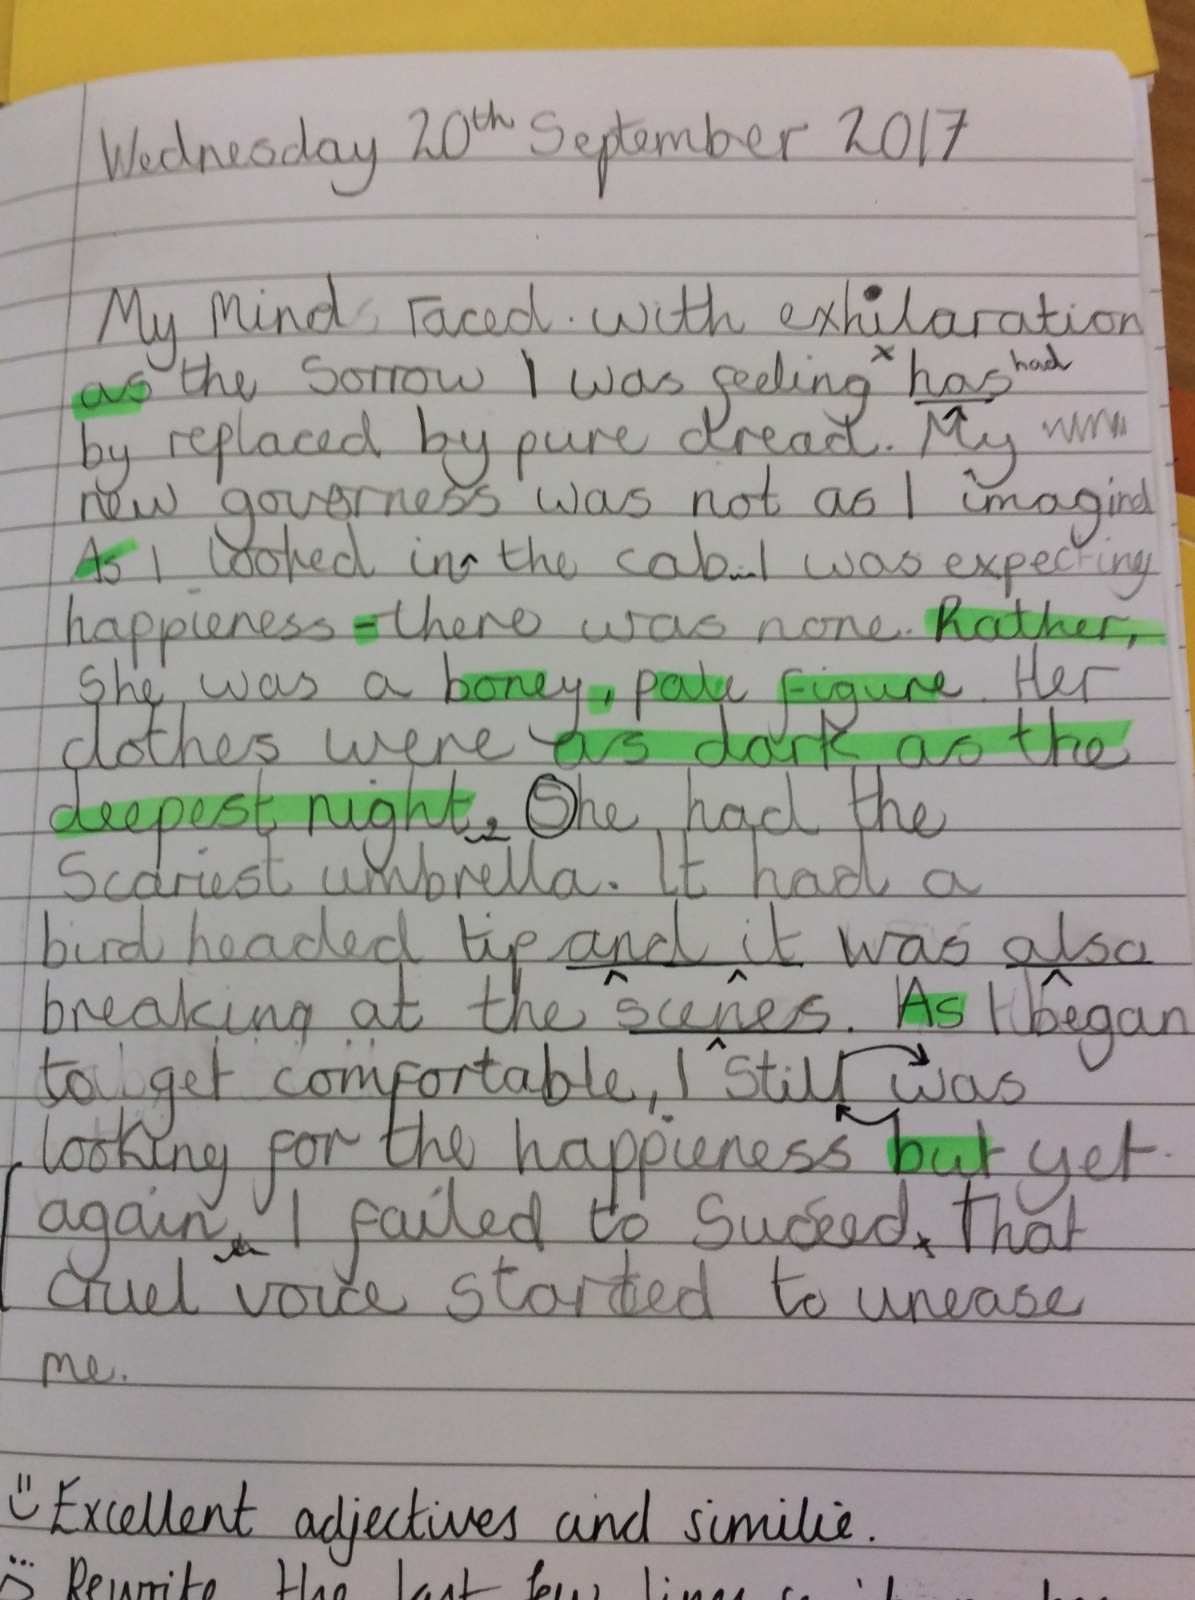 Wednesday 20th September 2017
My mind raced with exhilaration
as the Sorrow I was feeling has had
by replaced by pure dread. My
new governess was not as I imagind
As I looked in the cab... I was expecting
happieness - there was none. Rather,
She was a boney, pale figure. Her
clothes were as dark as the
deepest night. She had the
Scariest umbrella. It had a
bird headed tip and it was also
breaking at the scenes. As I began
to get comfortable, I still was
looking for the happieness but yet
again, I failed to Suceed. That
cruel voice started to unease
me.
Excellent adjectives and similie.
Rewrite the last few lines